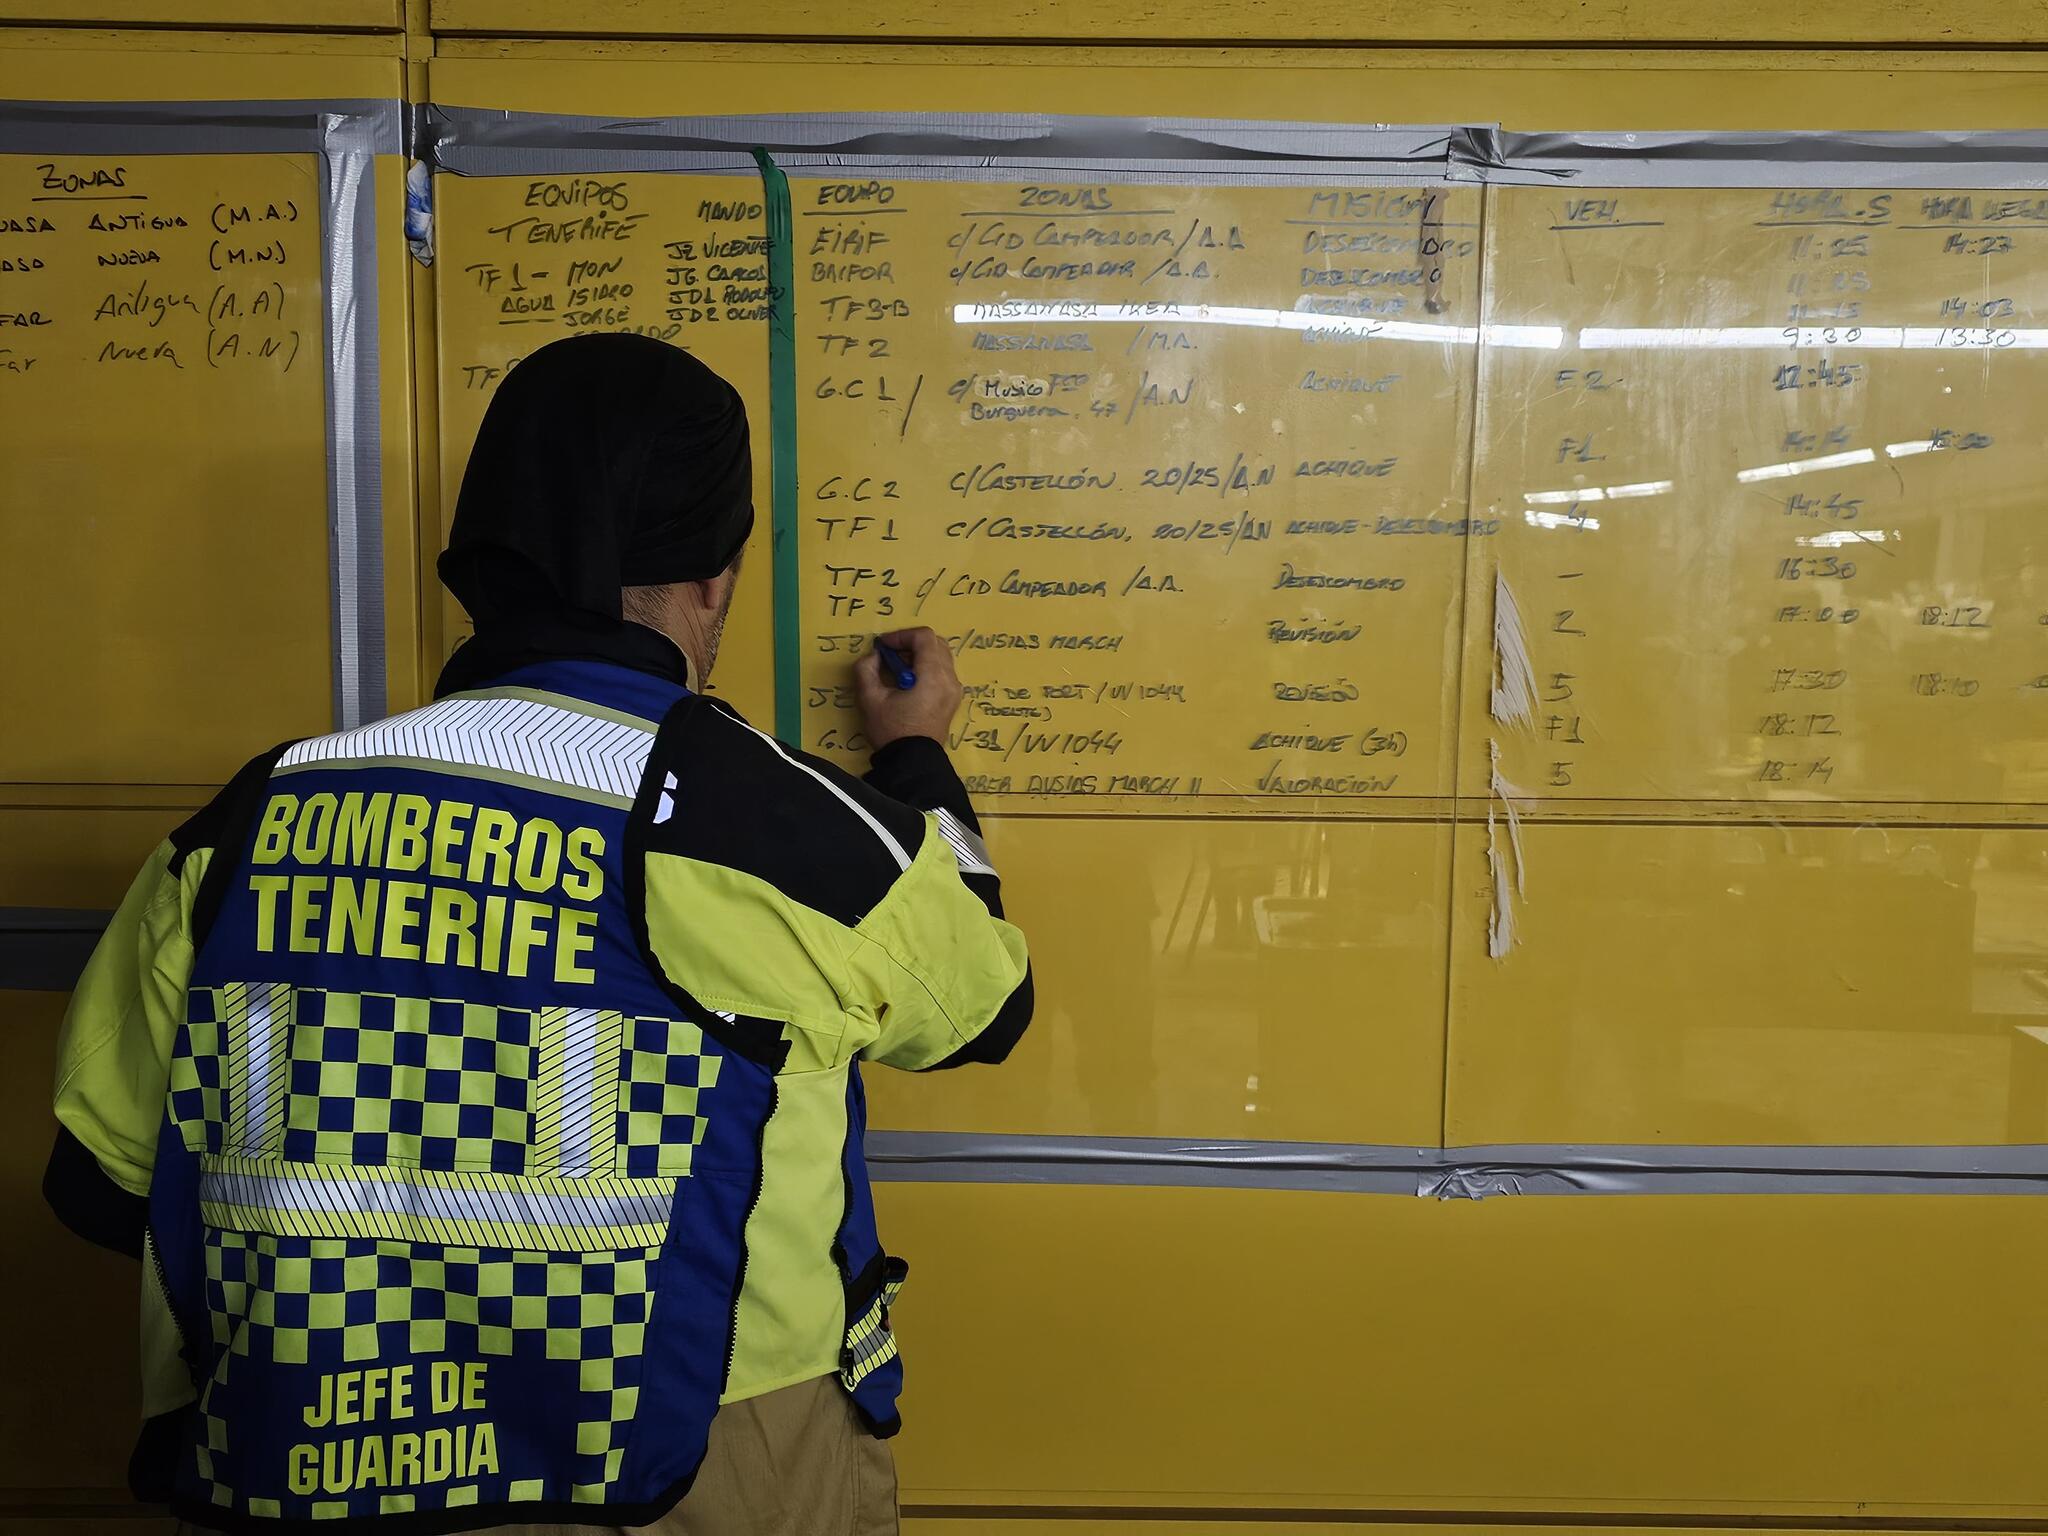 ZONAS
ANTIGUA (M.A.)
NUEVA (M.N.)
FAR Antigua (A.A)
Far Nueva (A.N)
EQUIPOS
TENERIFE
MANDO
JZ VICENTE
TF 1 - MON
JG. CARLOS
AGUA ISIDRO
JD1 RODOLFO
JORGE
JD2 OLIVER
TF
EQUIPO ZONAS MISION VEH. HORA.S HORA LLEGA
EIRIF c/ CID CAMPEADOR / A.A DESESCOMBRO 11:25 14:27
BRIFOR c/ CID CAMPEADOR / A.A. DESESCOMBRO 11:25
TF3-B MASSANASA IKEA ACHIQUE 11:15 14:03
TF 2 MASSANASA / M.A. ACHIQUE 9:30 13:30
G.C 1 / c/ Musico Fco ACHIQUE F2 12:45
Burguera, 47 / A.N
F1 14:14
G.C 2 c/ CASTELLÓN. 20/25/A.N ACHIQUE
14:45
TF 1 c/ CASTELLÓN, 20/25/AN ACHIQUE-DESESCOMBRO 4
TF 2 c/ CID CAMPEADOR / A.A. DESESCOMBRO - 16:30
TF 3
JZ c/ AUSIAS MARCH REVISIÓN 2 17:00 18:12
JZ DE PORT / VV 1044 REVISIÓN 5 17:30 18:10
(PUENTE)
G.C V-31 / VV 1044 ACHIQUE (3h) F1 18:12
RRER AUSIAS MARCH, 11 VALORACIÓN 5 18:14
BOMBEROS
TENERIFE
JEFE DE
GUARDIA